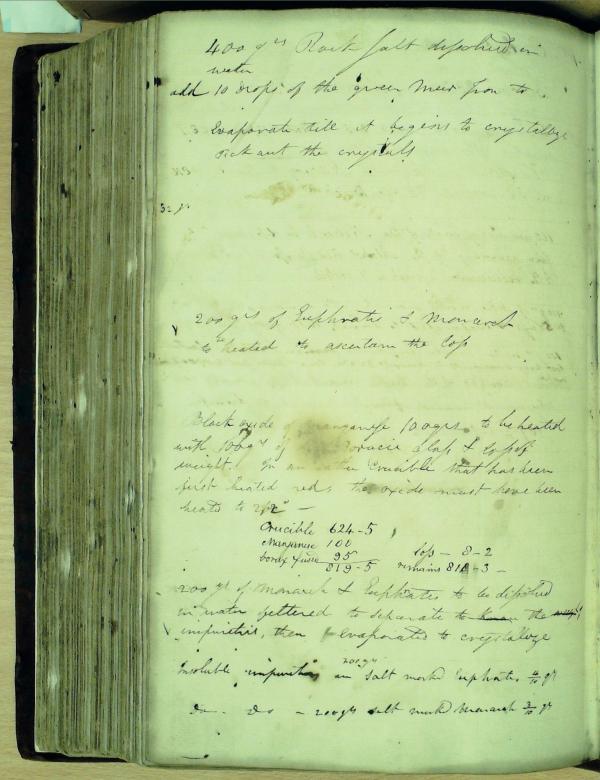 400 grs Rock Salt dissolved in
water
add 10 drops of the green Muer Iron to
Evaporate till it begins to crystallize
pick out the crystals
32 gr
200 grs of Euphrates & Monarch
to heated to ascertain the loss
Black oxide of Manganese 100 grs to be heated
with 100 grs of Boracic glass & loss of
weight. In an Crucible that has been
first heated red, the oxide must have been
heated to 212° —
Crucible 624-5
Manganese 100
borax fused 95
819-5
loss — 8-2
remains 811-3 —
200 gr of Monarch & Euphrates to be dissolved
in water filtered to separate the
impurities, then evaporated to crystallize
200 grs
Insoluble impurities in Salt marked Euphrates 4/10 gr
Do. Do — 200 grs salt marked Monarch 3/10 gr